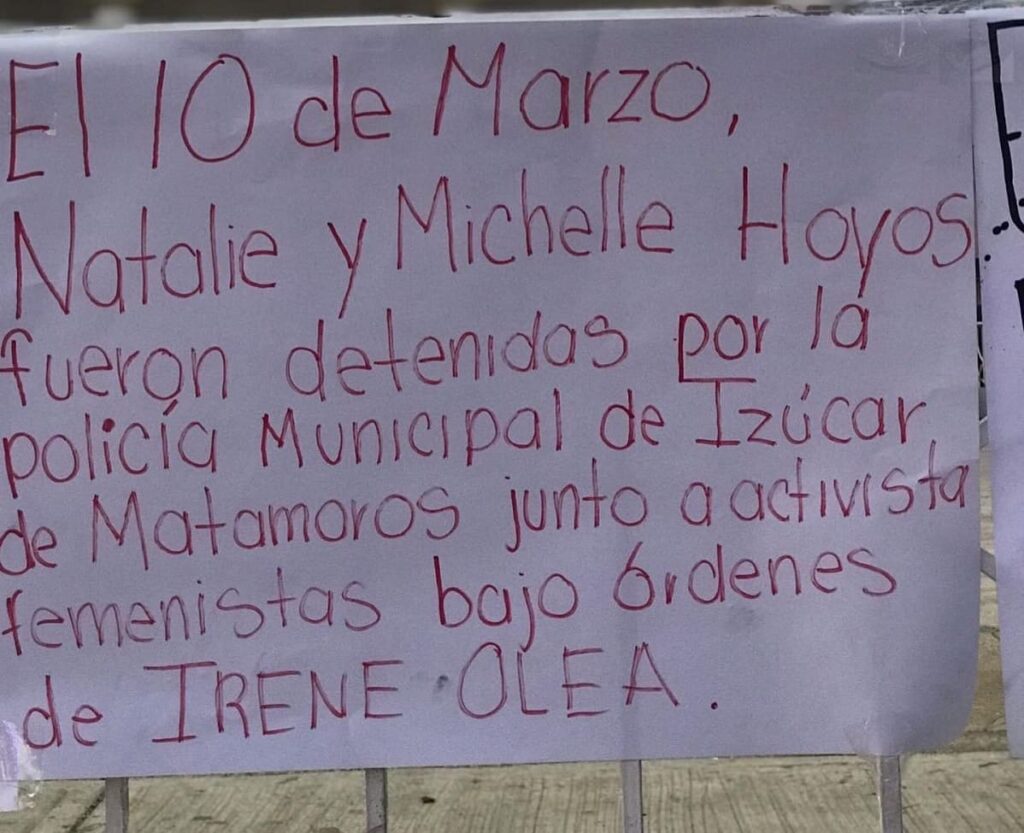 El 10 de Marzo,
Natalie y Michelle Hoyos
fueron detenidas por la
policía Municipal de Izúcar
de Matamoros junto a activista
femenistas bajo órdenes
de IRENE OLEA.